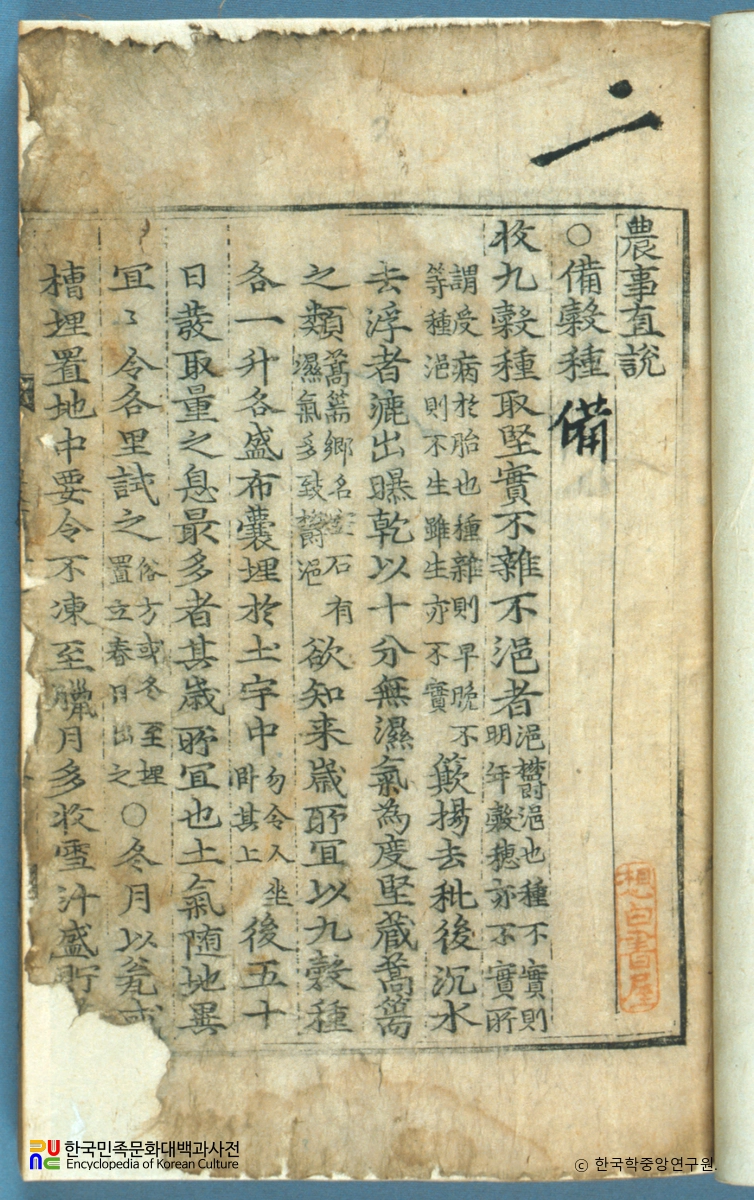 二
農事直說
○備穀種 備
收九穀種取堅實不雜不浥者浥欝浥也種不實則
明年穀穗亦不實所
謂受病於胎也種雜則早晚不
等種浥則不生雖生亦不實
簸揚去秕後沉水
去浮者漉出曝乾以十分無濕氣為度堅藏蒿篅
之類蒿篅鄕名空石有
濕氣多致欝浥
欲知来歲所宜以九穀種
各一升各盛布囊埋於土宇中勿令人坐
卧其上
後五十
日發取量之息最多者其歲所宜也土氣随地異
宜〻令各里試之俗方或冬至埋
置立春日出之
○冬月以瓮或
槽埋置地中要令不凍至臘月多收雪汁盛貯
想白書屋
한국민족문화대백과사전
Encyclopedia of Korean Culture
ⓒ 한국학중앙연구원.